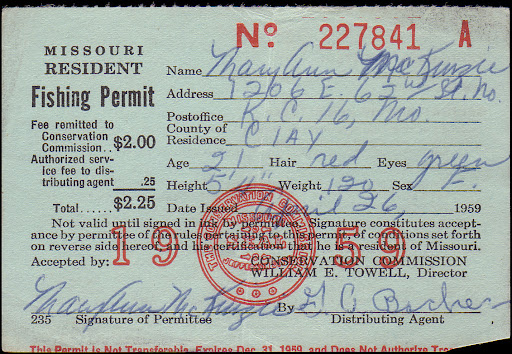 Nº 227841 A
MISSOURI
RESIDENT
Fishing Permit
Name Mary Ann McKinzie
Address 1206 E. 62nd St. No.
Postoffice K.C. 16, Mo.
County of
Residence Clay
Fee remitted to
Conservation
Commission.. $2.00
Authorized serv-
ice fee to dis-
tributing agent .25
Total...... $2.25
Age 21 Hair red Eyes green
Height 5' Weight 120 Sex F.
Date Issued April 26 1959
Not valid until signed in ink by permittee. Signature constitutes accept-
ance by permittee of the rules pertaining to this permit, of conditions set forth
on reverse side hereof, and his certification that he is a resident of Missouri.
1959
Accepted by: CONSERVATION COMMISSION
WILLIAM E. TOWELL, Director
Mary Ann McKinzie By
235 Signature of Permittee Distributing Agent
This Permit is Not Transferable—Expires Dec. 31, 1959, and Does Not Authorize